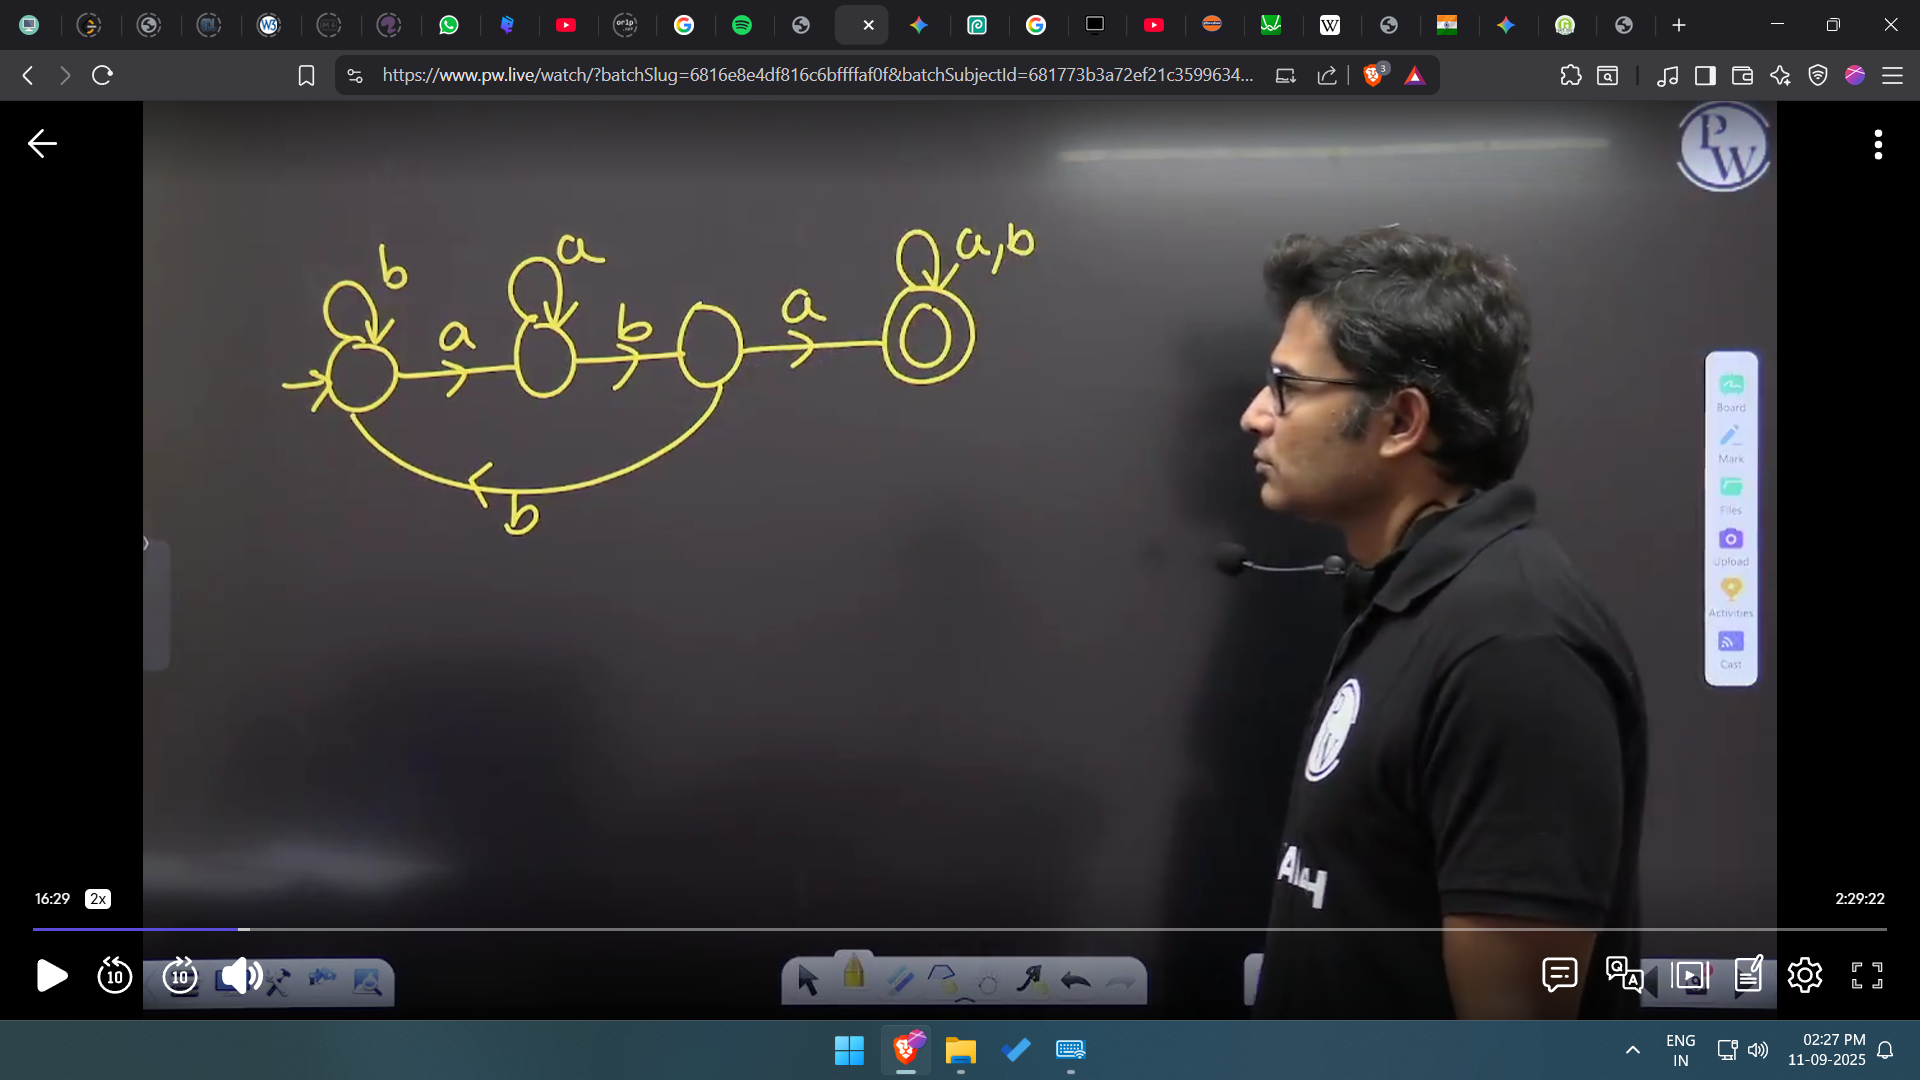 https://www.pw.live/watch/?batchSlug=6816e8e4df816c6bffffaf0f&batchSubjectId=681773b3a72ef21c3599634...
3
PW
b
a
a,b
a
b
a
b
Board
Mark
Files
Upload
Activities
Cast
PW
16:29
2x
2:29:22
10
10
ENG
IN
02:27 PM
11-09-2025